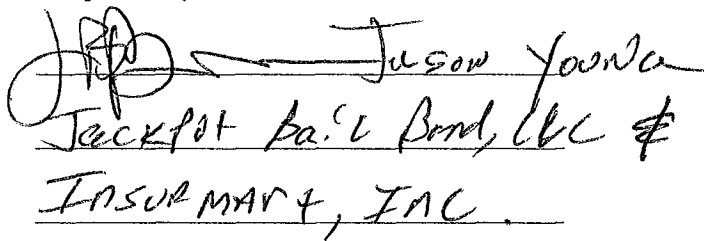 Jason Young
Jackpot Bail Bond, LLC &
INSURMART, INC.